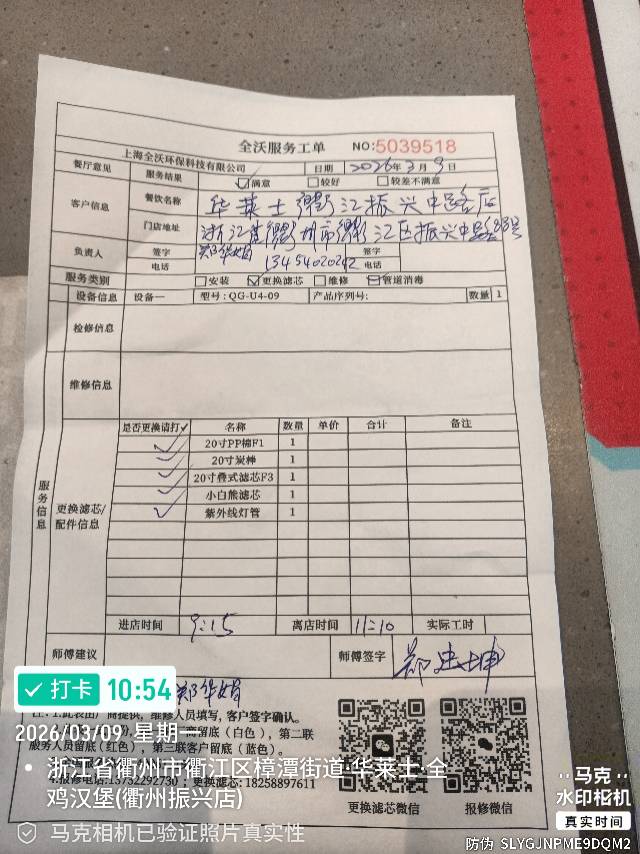 全沃服务工单 NO:5039518
上海全沃环保科技有限公司 日期 2026年3月9日
餐厅意见 服务结果 满意 较好 较差不满意
客户信息 餐饮名称 华莱士衢江振兴中路店
门店地址 浙江省衢州市衢江区振兴中路88号
负责人 签字 郑华娟 签字
电话 13454020242 电话
服务类别 安装 更换滤芯 维修 管道消毒
设备信息 设备一 型号:QG-U4-09 产品序列号: 数量 1
检修信息
维修信息
服务信息
更换滤芯/配件信息
是否更换请打✓ 名称 数量 单价 合计 备注
✓ 20寸PP棉F1 1
✓ 20寸炭棒 1
✓ 20寸叠式滤芯F3 1
✓ 小白熊滤芯 1
✓ 紫外线灯管 1
进店时间 9:15 离店时间 11:10 实际工时
师傅建议 师傅签字 郑忠坤
郑华娟
商提供,维修人员填写,客户签字确认。
商留底(白色),第二联
服务人员留底(红色),第三联客户留底(蓝色)。
报修电话:15752292730 更换滤芯:18258897611
更换滤芯微信 报修微信
打卡 10:54
2026/03/09 星期一
浙江省衢州市衢江区樟潭街道·华莱士·全
鸡汉堡(衢州振兴店)
马克相机已验证照片真实性
马克
水印相机
真实时间
防伪 SLYGJNPME9DQM2